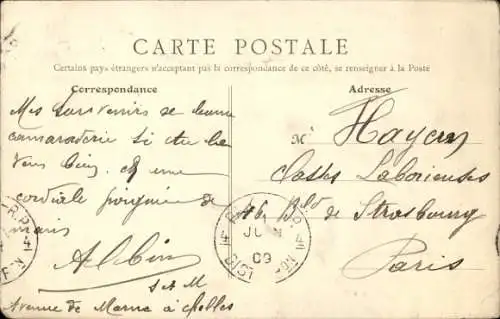 CARTE POSTALE
Certains pays étrangers n'acceptant pas la correspondance de ce côté, se renseigner à la Poste
Correspondance
Adresse
Mes souvenirs de bonne
camaraderie si tu le
veux bien. et une
cordiale poignée de
mains
Albin
Avenue de Marne à Chelles
Mr Hayem
Classes Laborieuses
46 Bld de Strasbourg
Paris
JUIN
09
DIST